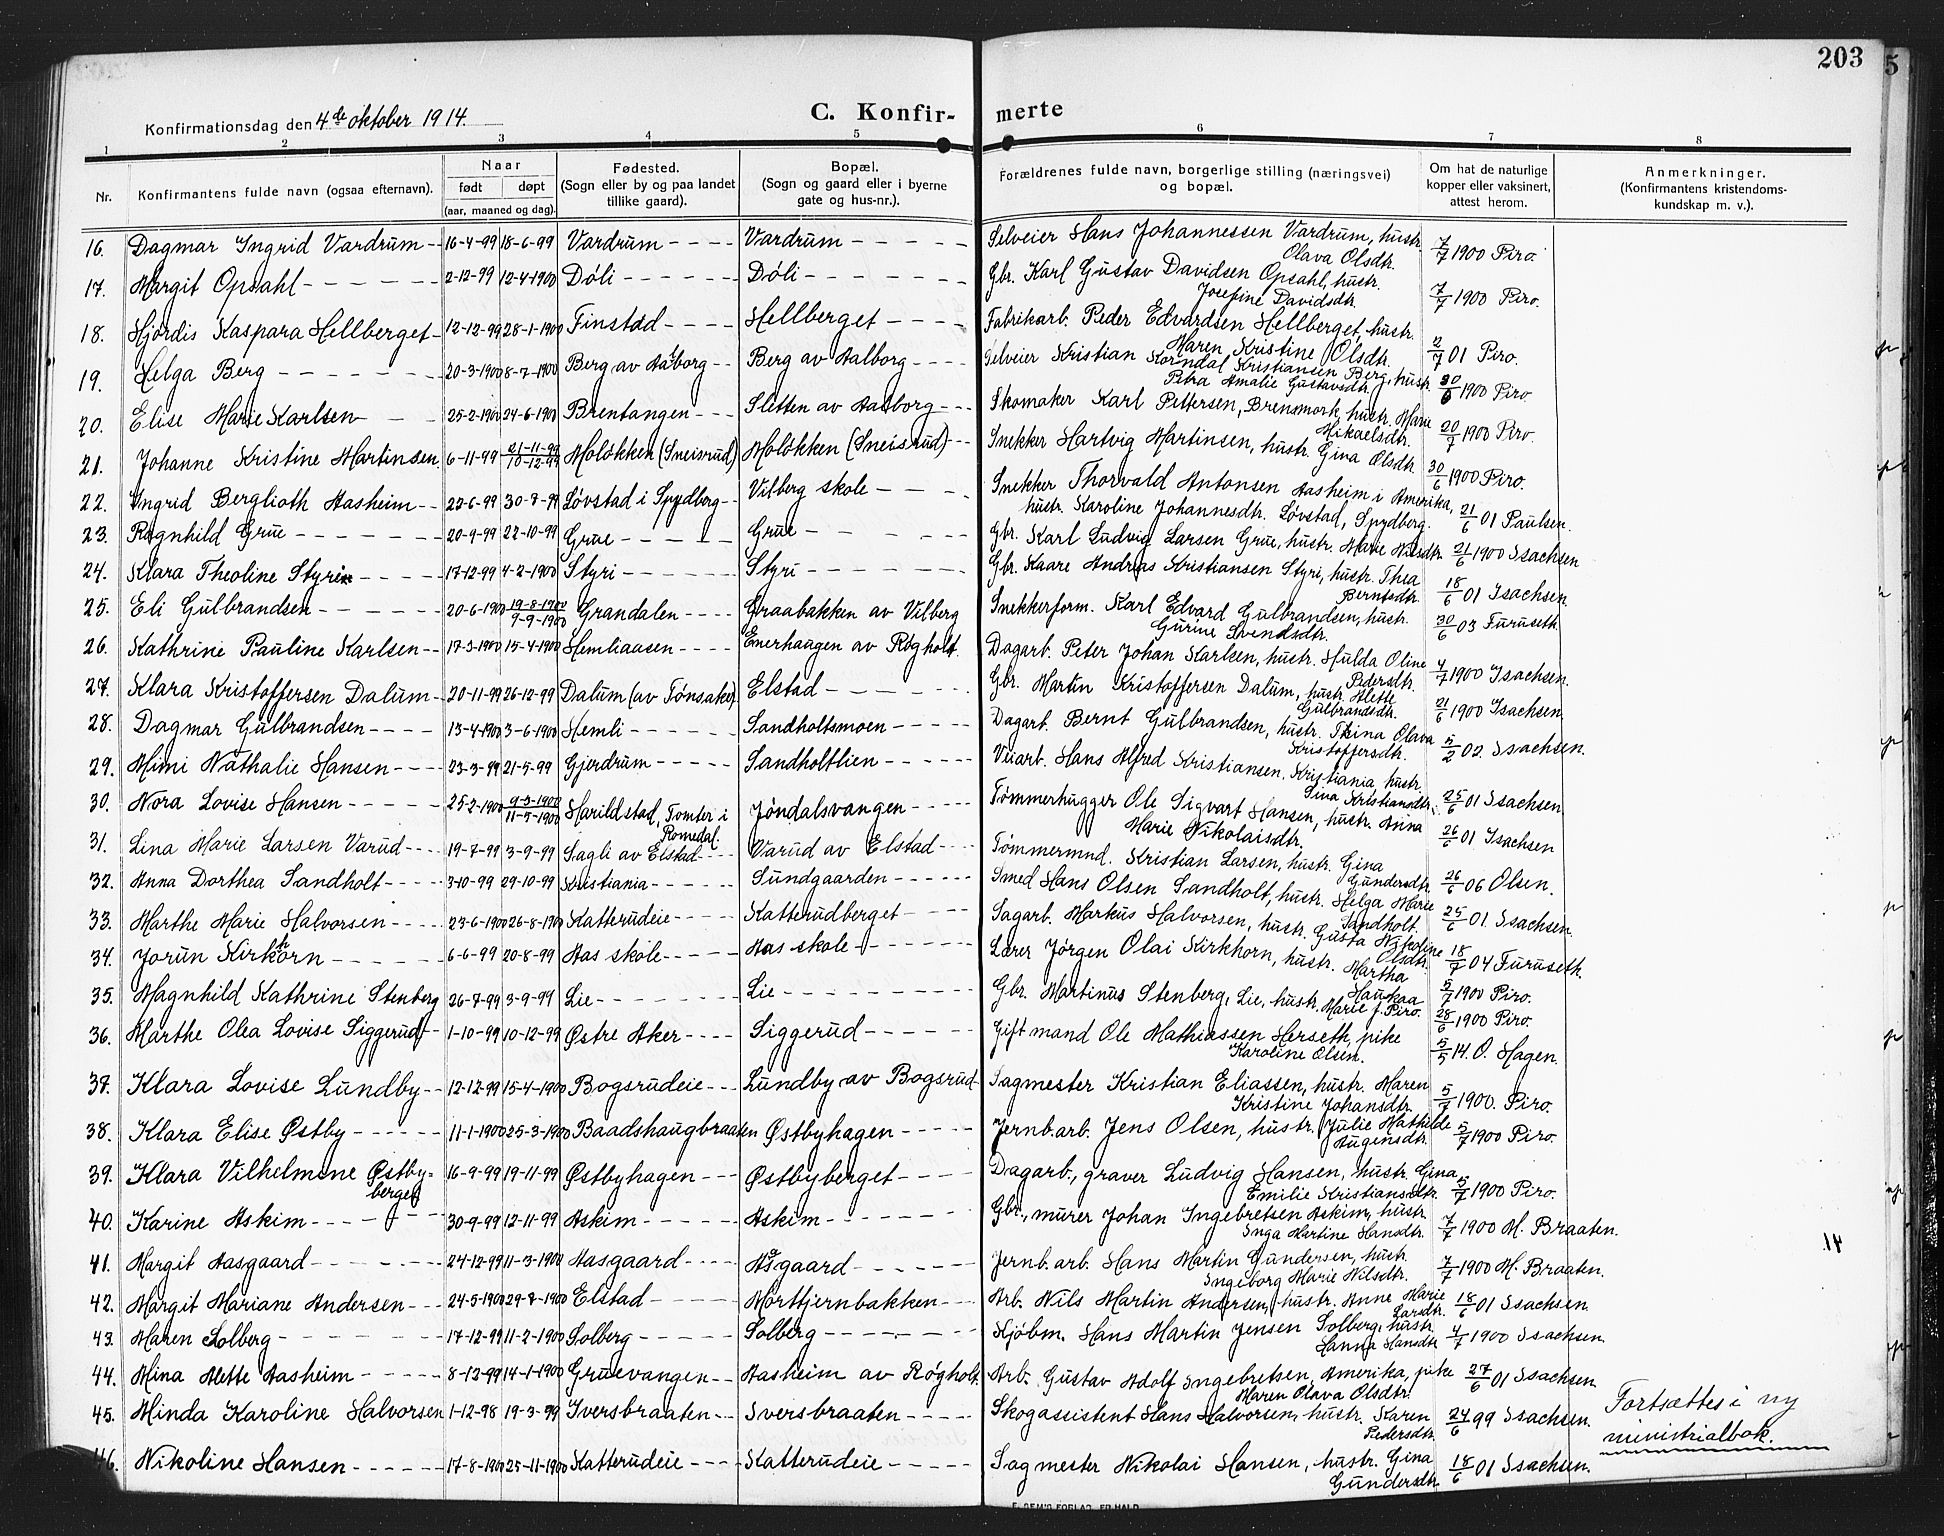 203
5
Konfirmationsdag den 4de oktober 1914.
C. Konfir- merte
1 2 3 4 5 6 7 8
Nr.
Konfirmantens fulde navn (ogsaa efternavn).
Naar
født døpt
(aar, maaned og dag).
Fødested.
(Sogn eller by og paa landet
tillike gaard).
Bopæl.
(Sogn og gaard eller i byerne
gate og hus-nr.).
Forældrenes fulde navn, borgerlige stilling (næringsvei)
og bopæl.
Om hat de naturlige
kopper eller vaksinert,
attest herom.
Anmerkninger.
(Konfirmantens kristendoms-
kundskap m. v.).
16. Dagmar Ingrid Vardrum 16-4-99 18-6-99 Vardrum Vardrum Selveier Hans Johannessen Vardrum, hustr. 7/7 1900 Piro.
Olava Olsdtr.
17. Margit Opsahl 2-12-99 12-4-1900 Döli Döli Gbr. Karl Gustav Davidsen Opsahl, hustr. 7/7 1900 Piro.
Josefine Davidsdtr.
18. Hjördis Kaspara Hellberget 12-12-99 28-1-1900 Finstad Hellberget Fabrikarb. Peder Edvardsen Hellberget, hustr. 2/7 01 Piro.
Maren Kristine Olsdtr.
19. Helga Berg 20-3-1900 8-7-1900 Berg av Aalborg Berg av Aalborg Selveier Kristian Korndal Kristiansen Berg, hustr. 30/6 1900 Piro
Petra Amalie Gustavsdtr.
20. Elise Marie Karlsen 25-2-1900 24-6-1900 Brentangen Sletten av Aalborg Skomaker Karl Pettersen, Brensmork, hustr. Marie 20/7 1900 Piro.
Mikaelsdtr.
21. Johanne Kristine Martinsen 6-11-99 21-11-99 / 10-12-99 Molökken (Sneisrud) Molökken (Sneisrud) Snekker Hartvig Martinsen, hustr. Gina Olsdtr. 30/6 1900 Piro.
22. Ingrid Berglioth Aasheim 22-6-99 30-7-99 Lövstad i Spydberg Vilberg skole Snekker Thorvald Antonsen Aasheim i Amerika, 21/6 01 Paulsen.
hustr. Karoline Johannesdtr. Lövstad, Spydberg.
23. Ragnhild Grue 20-9-99 22-10-99 Grue Grue Gbr. Karl Ludvig Larsen Grue, hustr. Marie Nilsdtr. 21/6 1900 Isachsen
24. Klara Theoline Styri 17-12-99 4-2-1900 Styri Styri Gbr. Kaare Andreas Kristiansen Styri, hustr. Thea 18/6 01 Isachsen.
Berntsdtr.
25. Eli Gulbrandsen 20-6-1900 19-8-1900 / 9-9-1900 Grandalen Graabakken av Vilberg Snekkerform. Karl Edvard Gulbrandsen, hustr. 30/6 03 Furuseth.
Gurine Svendsdtr.
26. Kathrine Pauline Karlsen 17-3-1900 15-4-1900 Hemliaasen Enerhaugen av Rögholt. Dagarb. Peter Johan Karlsen, hustr. Hulda Oline 4/7 1900 Isachsen.
Pedersdtr.
27. Klara Kristoffersen Dalum 20-11-99 26-12-99 Dalum (av Tönsaker) Elstad Gbr. Martin Kristoffersen Dalum, hustr. Alette 21/6 1900 Isachsen
Gulbrandsdtr.
28. Dagmar Gulbrandsen 13-4-1900 3-6-1900 Hemli Sandholtsmoen Dagarb. Bernt Gulbrandsen, hustr. Trina Olava 5/2 02. Isachsen.
Kristoffersdtr.
29. Mimi Nathalie Hansen 23-3-99 21-5-99 Gjerdrum Sandholtlien Veiarb. Hans Alfred Kristiansen, Kristiania hustr.
Lina Kristiansdtr. 25/6 01 Isachsen
30. Nora Lovise Hansen 25-2-1900 9-3-1900 / 11-5-1900 Harildstad, Tomter i Jöndalsvangen Tömmerhugger Ole Sigvart Hansen, hustr. Anna 26/6 01 Isachsen
Romedal. Marie Nikolaisdtr.
31. Lina Marie Larsen Varud 19-7-99 3-9-99 Sagli av Elstad Varud av Elstad Tömmermnd. Kristian Larsen, hustr. Gina
Gundersdtr. 26/6 06 Olsen.
32. Anna Dorthea Sandholt 3-10-99 29-10-99 Kristiania Sundgaarden Smed Hans Olsen Sandholt, hustr. Helga Marie
Sandholt. 25/6 01. Isachsen.
33. Marthe Marie Halvorsen 23-6-1900 26-8-1900 Katterudeie Katterudberget Sagarb. Markus Halvorsen, hustr. Gusta Nikoline
Olsdtr. 18/7 04 Furuseth.
34. Jorun Kirkhorn 6-6-99 20-8-99 Aas skole Aas skole Lærer Jörgen Olai Kirkhorn, hustr. Martha
Haukaa 5/7 1900 Piro.
35. Magnhild Kathrine Stenberg 26-7-99 3-9-99 Lie Lie Gbr. Martinus Stenberg, Lie, hustr. Marie f. Piro. 28/6 1900 Piro.
36. Marthe Olea Lovise Siggerud 1-10-99 10-12-99 Østre Aker Siggerud Gift mand Ole Mathiassen Herseth, pike 5/5 14. O. Hagen.
Karoline Olsen.
37. Klara Lovise Lundby 12-12-99 15-4-1900 Bogsrudeie Lundby av Bogsrud Sagmester Kristian Eliassen, hustr. Maren 5/7 1900. Piro.
Kristine Johansdtr.
38. Klara Elise Østby 11-1-1900 25-3-1900 Baadshaugbraaten Østbyhagen Jernb.arb. Jens Olsen, hustr. Julie Mathilde 5/7 1900 Piro.
Augensdtr.
39. Klara Vilhelmine Østby- 16-9-99 19-11-99 Østbyhagen Østbyberget Dagarb., graver Ludvig Hansen, hustr. Gina 5/7 1900 Piro.
berget Emilie Kristiansdtr.
40. Karine Askim 30-9-99 12-11-99 Askim Askim Gbr., murer Johan Ingebretsen Askim, hustr. 7/7 1900 M. Braaten.
Inga Martine Hansdtr.
41. Margit Aasgaard 24-12-99 11-3-1900 Aasgaard Aasgaard Jernb.arb. Hans Martin Gundersen, hustr. 7/7 1900 M. Braaten.
Ingeborg Marie Nilsdtr.
42. Margit Mariane Andersen 24-5-1900 29-7-1900 Elstad Morttjernbakken Arb. Nils Martin Andersen, hustr. Anne Marie 18/6 01 Isachsen
Larsdtr.
43. Maren Solberg 17-12-99 11-2-1900 Solberg Solberg Kjöbm. Hans Martin Jensen Solberg, hustr. 4/7 1900 Isachsen.
Hanna Hansdtr.
44. Mina Alette Aasheim 8-12-99 14-1-1900 Gruevangen Aasheim av Rögholt. Arb. Gustav Adolf Ingebretsen, Amerika, pike 27/6 01 Isachsen.
Maren Olava Olsdtr.
45. Minda Karoline Halvorsen 1-12-98 19-3-99 Iversbraaten Iversbraaten Skogassistent Hans Halvorsen, hustr. Karen 24/6 99 Isachsen.
Pedersdtr.
Fortsættes i ny
ministrialbok.
46. Nikoline Hansen 17-8-1900 25-11-1900 Katterudeie Katterudeie Sagmester Nikolai Hansen, hustr. Gina 18/6 01 Isachsen.
Gundersdtr.